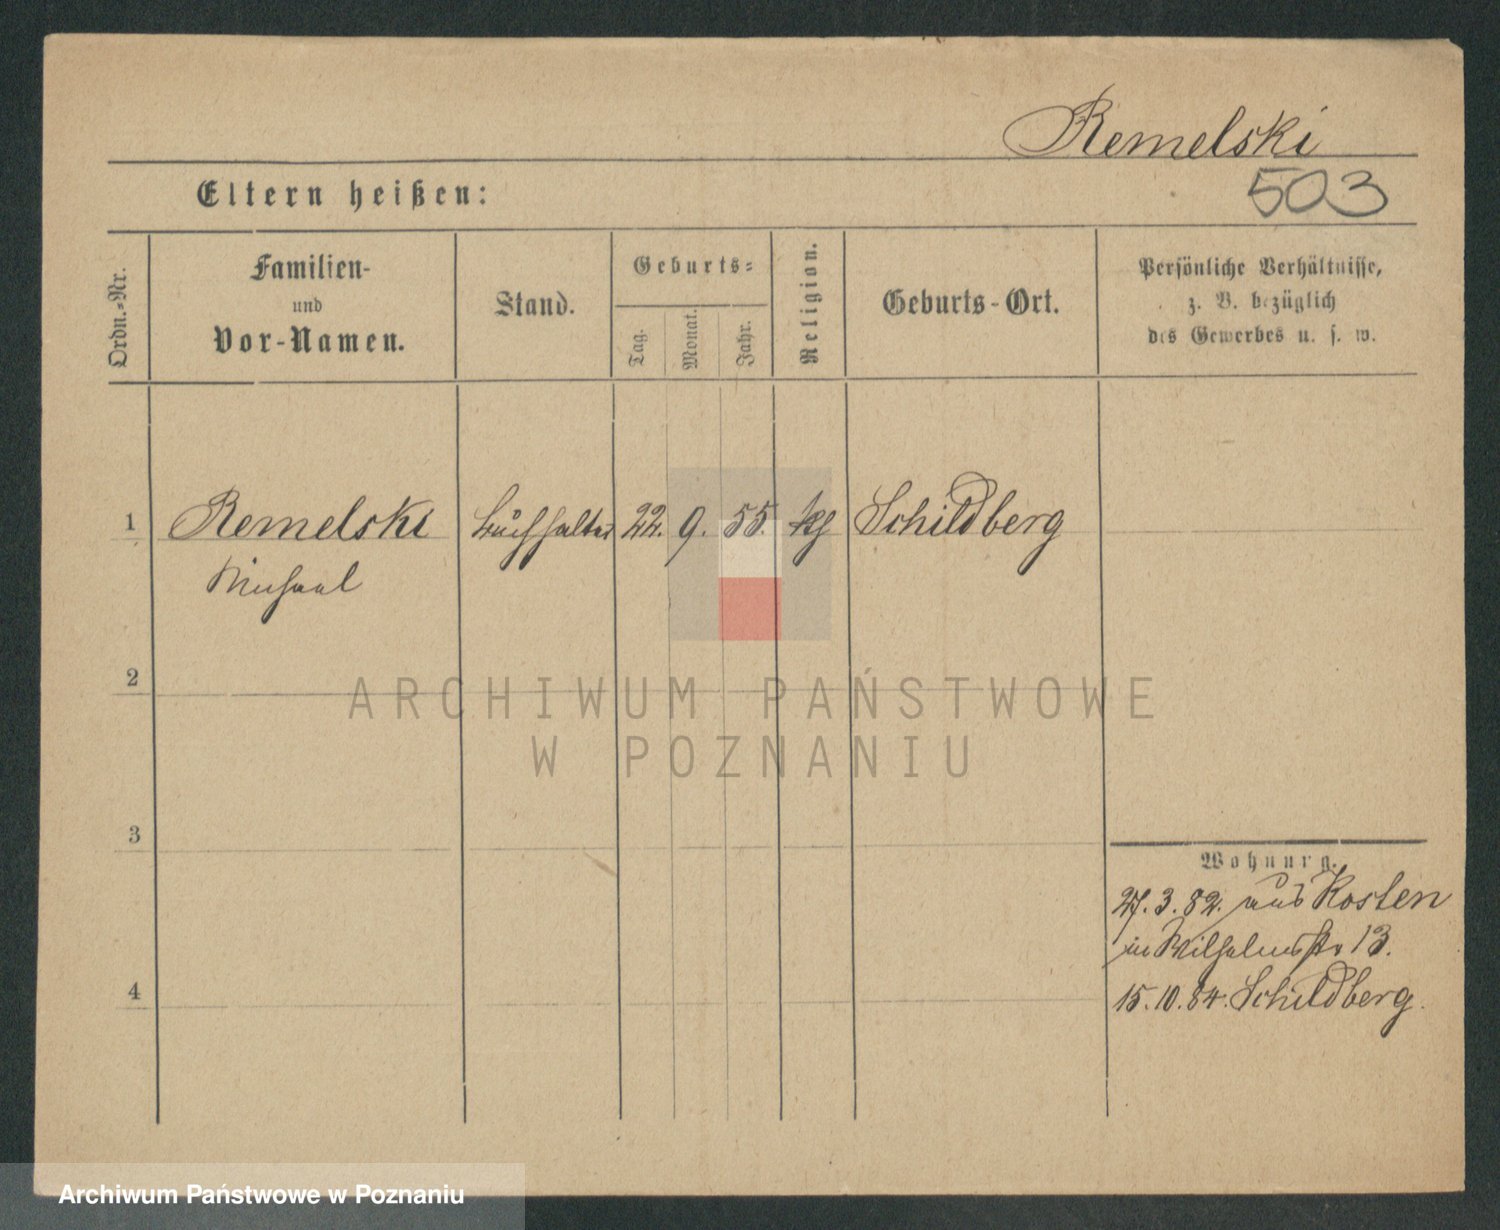 Remelski
503
Eltern heißen:
Ordn.-Nr.
Familien-
und
Vor-Namen.
Stand.
Geburts-
Tag.
Monat.
Jahr.
Religion.
Geburts-Ort.
Persönliche Verhältnisse,
z. B. bezüglich
des Gewerbes u. s. w.
1 Remelski Buchhalter 22. 9. 55. Schildberg
Michael
2
ARCHIWUM PAŃSTWOWE
W POZNANIU
3
Wohnung.
27. 3. 82. aus Kosten
in Wilhelmstr 13.
4
15. 10. 84. Schildberg.
Archiwum Państwowe w Poznaniu